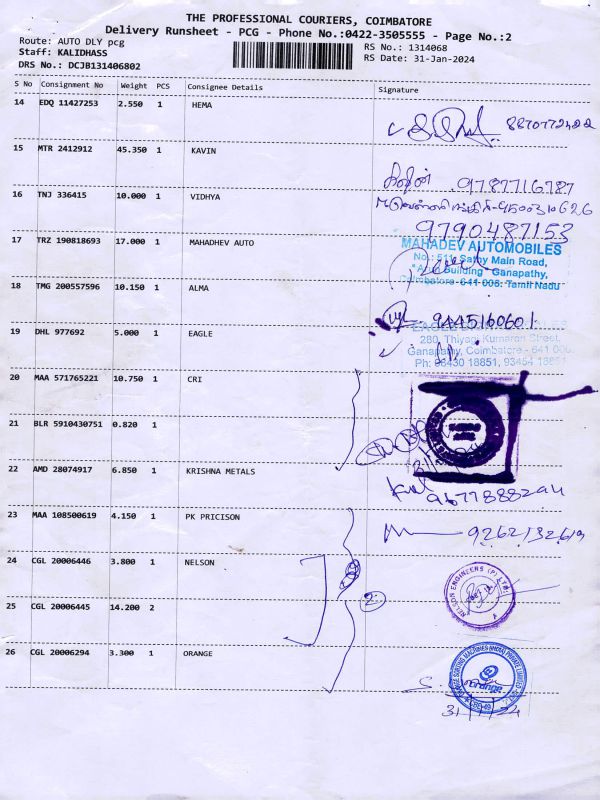 THE PROFESSIONAL COURIERS, COIMBATORE
Delivery Runsheet - PCG - Phone No.:0422-3505555 - Page No.:2
Route: AUTO DLY pcg
RS No.: 1314068
Staff: KALIDHASS
RS Date: 31-Jan-2024
DRS No.: DCJB131406802
S No Consignment No Weight PCS Consignee Details Signature
14 EDQ 11427253 2.550 1 HEMA
15 MTR 2412912 45.350 1 KAVIN
9787716787
16 TNJ 336415 10.000 1 VIDHYA
9790487153
17 TRZ 190818693 17.000 1 MAHADHEV AUTO
MAHADEV AUTOMOBILES
No.: 511, Sathy Main Road,
Building" Ganapathy,
Coimbatore - 641 006. Tamil Nadu
18 TMG 200557596 10.150 1 ALMA
9445160601
19 DHL 977692 5.000 1 EAGLE
280, Thiyagi Kumaran Street,
Ganapathy, Coimbatore - 641 006
Ph: 98430 18851, 93454 18851
20 MAA 571765221 10.750 1 CRI
21 BLR 5910430751 0.820 1
22 AMD 28074917 6.850 1 KRISHNA METALS
23 MAA 108500619 4.150 1 PK PRICISON
9262132619
24 CGL 20006446 3.800 1 NELSON
NELSON ENGINEERS (P) LTD.
25 CGL 20006445 14.200 2
2
26 CGL 20006294 3.300 1 ORANGE
orange
31/1/24